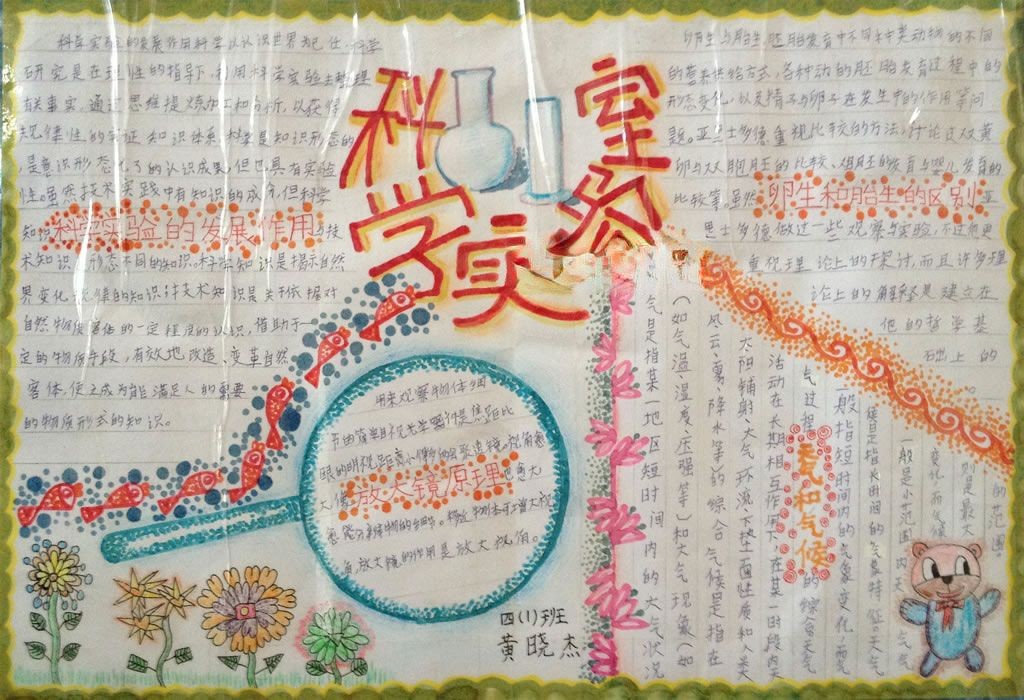 科学实验室
科学实验的发展作用科学以认识世界为己任,科学
研究是在理性的指导下,利用科学实验去整理
有关事实,通过思维提炼加工和分析,以获得
规律性的 知识体系科学是知识形态的
是意识形态化了的认识成果,但也具有实验
性。虽然技术实践中有知识的成分,但科学
知识
科学实验的发展作用
与技
术知识形态不同的知识。科学知识是揭示自然
界变化规律的知识技术知识是关于依据对
自然物质 的一定程度的认识,借助于一
定的物质手段,有效地改造、变革自然
客体,使之成为能满足人的需要
的物质形式的知识。
卵生与胎生胚胎发育中不同种类动物的不同
的营养供给方式,各种动的胚胎发育过程中的
形态变化,以及精子与卵子在发生中的作用等问
题。亚里士多德重视比较的方法,讨论过双黄
卵与双胞胚胎的比较、鸡胚的发育与婴儿发育的
比较等。虽然
卵生和胎生的区别
亚
里士多德做过一些观察与实验,不过他更
重视理论上的探讨,而且许多理
论上的解释是建立在
他的哲学基
础上的
用来观察物体细
节的简单目视光学器件是焦距比
眼的明视距离小得多的会聚透镜。视角愈
大,像
放大镜原理
也愈大
愈能分辨物的细节。
放大镜的作用是放大视角。
天气和气候
气是指某一地区短时间内的大气状况
(如气温、湿度、压强等)和大气现象(如
风、云、雾、降水等)的综合气候是指在
太阳辐射、大气环流、下垫面性质和人类
活动在长期相互作用下,在某一时段内
气过程的综合天气
一般指短时间内的气象变化,而气
候是指长时间的气象特征。天气
一般是小范围内天气
变化,而气候
则是最大
的范围。
四(1)班
黄晓杰